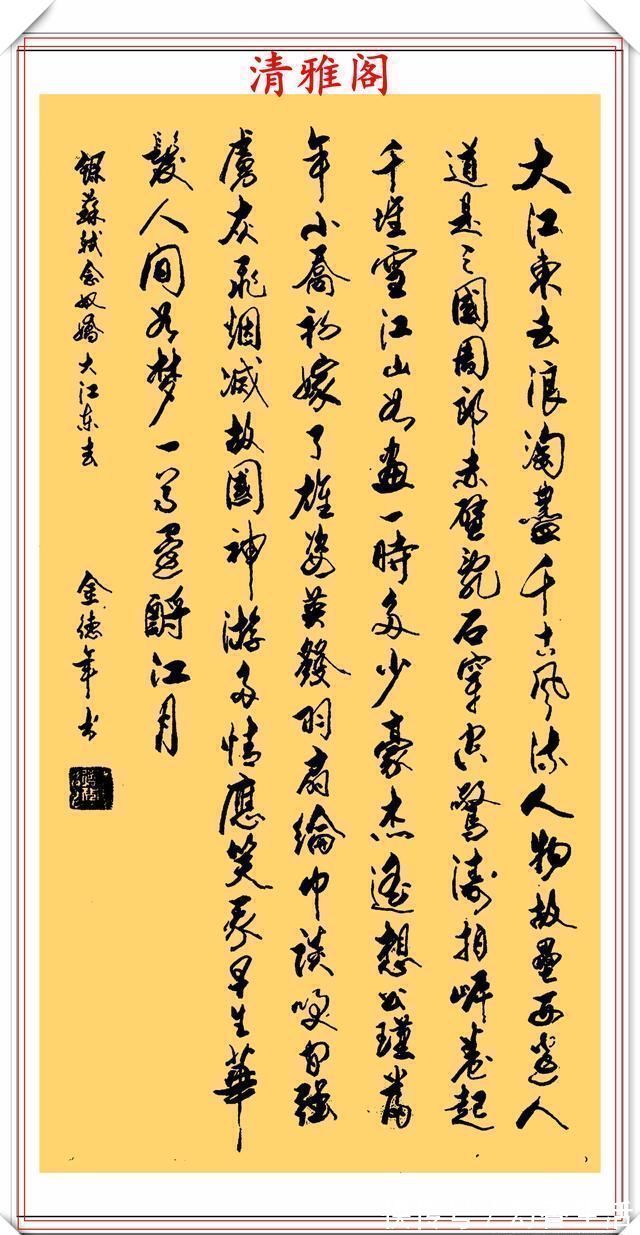 清雅阁
大江東去浪淘盡千古風流人物故壘西邊人
道是三國周郎赤壁亂石穿空驚濤拍岸卷起
千堆雪江山如畫一時多少豪杰遥想公瑾當
年小喬初嫁了雄姿英發羽扇綸巾談笑間强
虜灰飛烟滅故國神游多情應笑我早生華
髮人间如梦一尊還酹江月
録蘇軾念奴嬌大江东去
金德年书